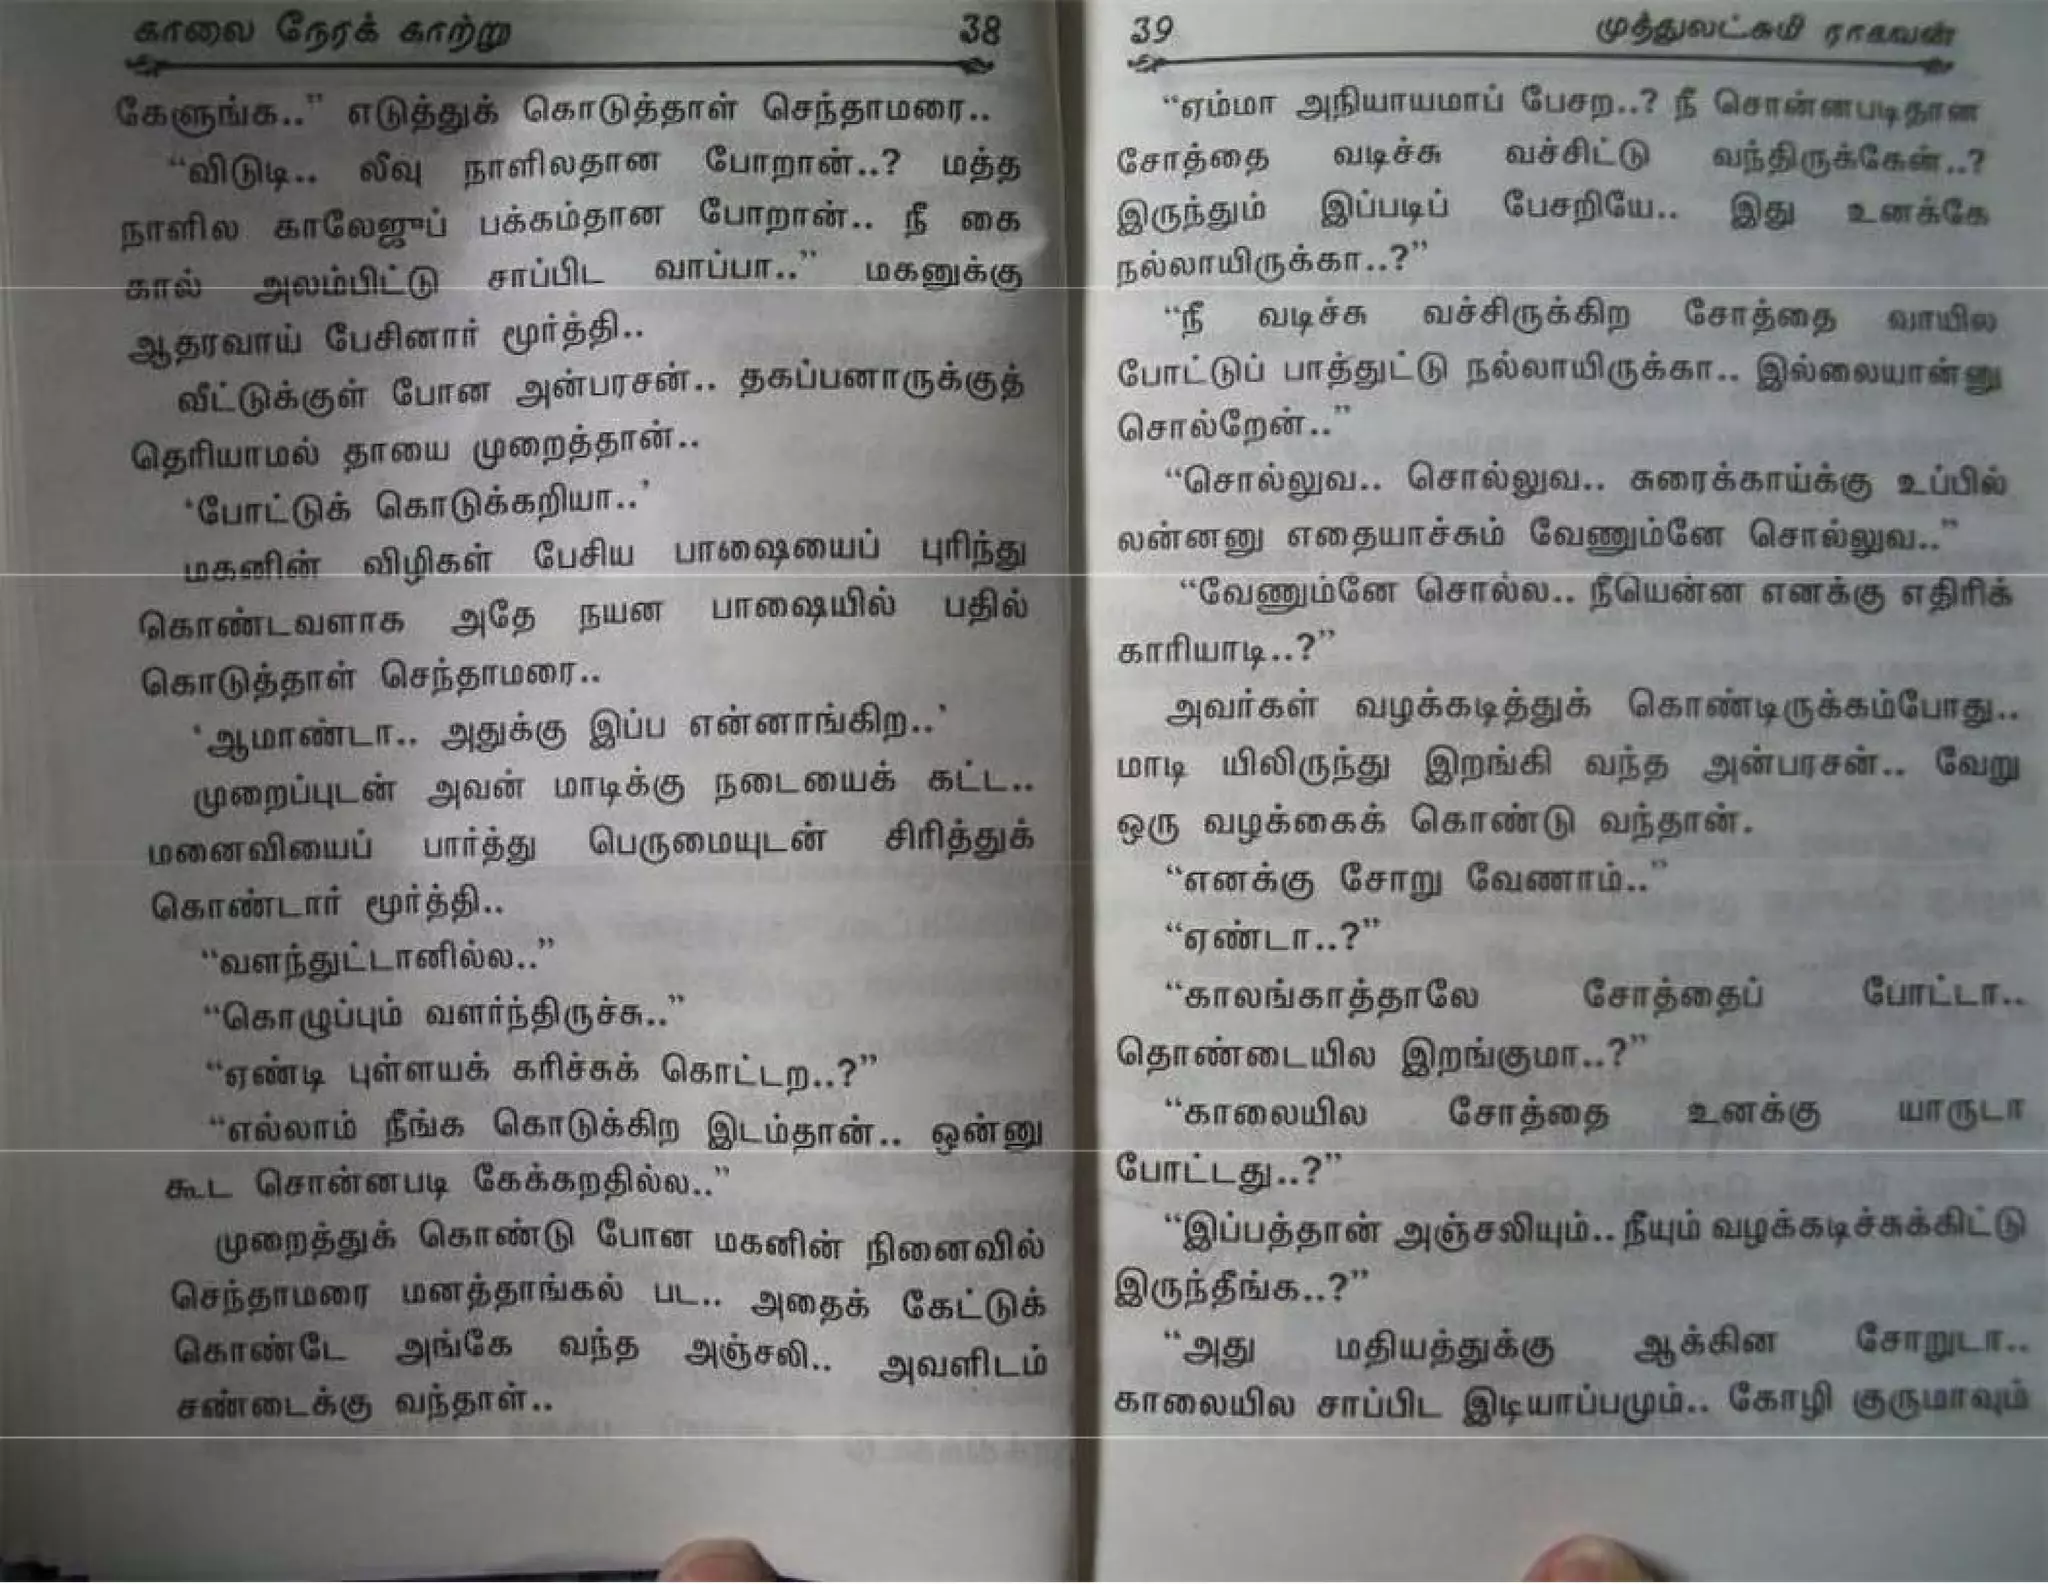 காலை நேரக் காற்று 38
கேளுங்க..” எடுத்துக் கொடுத்தாள் செந்தாமரை..
“விடுடி.. லீவு நாளிலதான போறான்..? மத்த
நாளில காலேஜுப் பக்கம்தான போறான்.. நீ கை
கால் அலம்பிட்டு சாப்பிட வாப்பா..” மகனுக்கு
ஆதரவாய் பேசினார் மூர்த்தி..
வீட்டுக்குள் போன அன்பரசன்.. தகப்பனாருக்குத்
தெரியாமல் தாயை முறைத்தான்..
‘போட்டுக் கொடுக்கறியா..’
மகனின் விழிகள் பேசிய பாஷையைப் புரிந்து
கொண்டவளாக அதே நயன பாஷையில் பதில்
கொடுத்தாள் செந்தாமரை..
‘ஆமாண்டா.. அதுக்கு இப்ப என்னாங்கிற..’
முறைப்புடன் அவன் மாடிக்கு நடையைக் கட்ட..
மனைவியைப் பார்த்து பெருமையுடன் சிரித்துக்
கொண்டார் மூர்த்தி..
“வளந்துட்டானில்ல..”
“கொழுப்பும் வளர்ந்திருச்சு..”
“ஏண்டி புள்ளயக் கரிச்சுக் கொட்டற..?”
“எல்லாம் நீங்க கொடுக்கிற இடம்தான்.. ஒன்னு
கூட சொன்னபடி கேக்கறதில்ல..”
முறைத்துக் கொண்டு போன மகனின் நினைவில்
செந்தாமரை மனத்தாங்கல் பட.. அதைக் கேட்டுக்
கொண்டே அங்கே வந்த அஞ்சலி.. அவளிடம்
சண்டைக்கு வந்தாள்..
39 முத்துலட்சுமி ராகவன்
“ஏம்மா அநியாயமாப் பேசற..? நீ சொன்னபடிதான
சோத்தை வடிச்சு வச்சிட்டு வந்திருக்கேன்..?
இருந்தும் இப்படிப் பேசறியே.. இது உனக்கே
நல்லாயிருக்கா..?”
“நீ வடிச்சு வச்சிருக்கிற சோத்தை வாயில
போட்டுப் பாத்துட்டு நல்லாயிருக்கா.. இல்லையான்னு
சொல்றேன்..”
“சொல்லுவ.. சொல்லுவ.. சுரைக்காய்க்கு உப்பில்
லன்னனு எதையாச்சும் வேணும்னே சொல்லுவ..”
“வேணும்னே சொல்ல.. நீயென்ன எனக்கு எதிரிக்
காரியாடி..?”
அவர்கள் வழக்கடித்துக் கொண்டிருக்கம்போது..
மாடி யிலிருந்து இறங்கி வந்த அன்பரசன்.. வேறு
ஒரு வழக்கைக் கொண்டு வந்தான்.
“எனக்கு சோறு வேணாம்..”
“ஏண்டா..?”
“காலங்காத்தாலே சோத்தைப் போட்டா..
தொண்டையில இறங்குமா..?”
“காலையில சோத்தை உனக்கு யாருடா
போட்டது..?”
“இப்பத்தான் அஞ்சலியும்.. நீயும் வழக்கடிச்சுக்கிட்டு
இருந்தீங்க..?”
“அது மதியத்துக்கு ஆக்கின சோறுடா..
காலையில சாப்பிட இடியாப்பமும்.. கோழி குருமாவும்